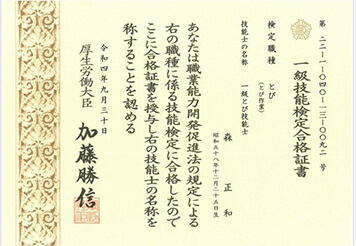 第 二二-一-〇四〇-一三-〇〇九二 号
一級技能検定合格証書
検定職種 とび
(とび作業)
技能士の名称 一級とび技能士
森 正和
昭和五十八年十二月二十五日生
あなたは職業能力開発促進法の規定による
右の職種に係る技能検定に合格したので
ここに合格証書を授与し右の技能士の名称を
称することを認める
令和四年九月三十日
厚生労働大臣 加藤勝信